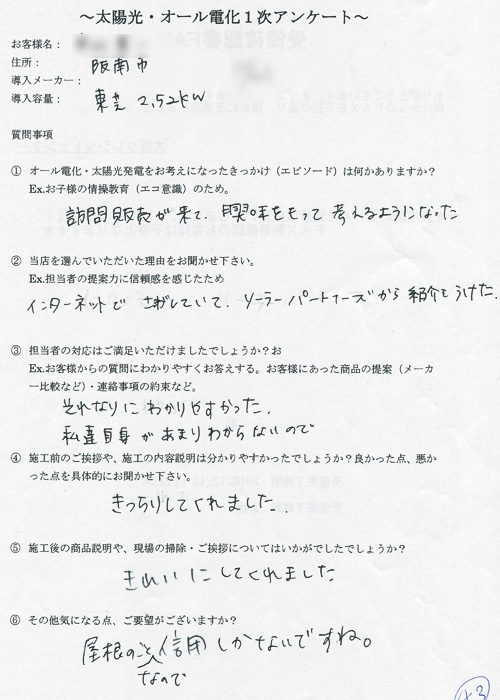 ～太陽光・オール電化１次アンケート～
お客様名：
住所： 阪南市
導入メーカー：
導入容量： 東芝 2.52kW
質問事項
① オール電化・太陽光発電をお考えになったきっかけ（エピソード）は何かありますか？
Ex.お子様の情操教育（エコ意識）のため。
訪問販売が来て、興味をもって考えるようになった
② 当店を選んでいただいた理由をお聞かせ下さい。
Ex.担当者の提案力に信頼感を感じたため
インターネットでさがしていて、ソーラーパートナーズから紹介をうけた.
③ 担当者の対応はご満足いただけましたでしょうか？お
Ex.お客様からの質問にわかりやすくお答えする。お客様にあった商品の提案（メーカ
ー比較など）・連絡事項の約束など。
それなりにわかりやすかった.
私達自身があまりわからないので
④ 施工前のご挨拶や、施工の内容説明は分かりやすかったでしょうか？良かった点、悪か
った点を具体的にお聞かせ下さい。
きっちりしてくれました.
⑤ 施工後の商品説明や、現場の掃除・ご挨拶についてはいかがでしたでしょうか？
きれいにしてくれました
⑥ その他気になる点、ご要望がございますか？
屋根の 信用しかないですね。
なので